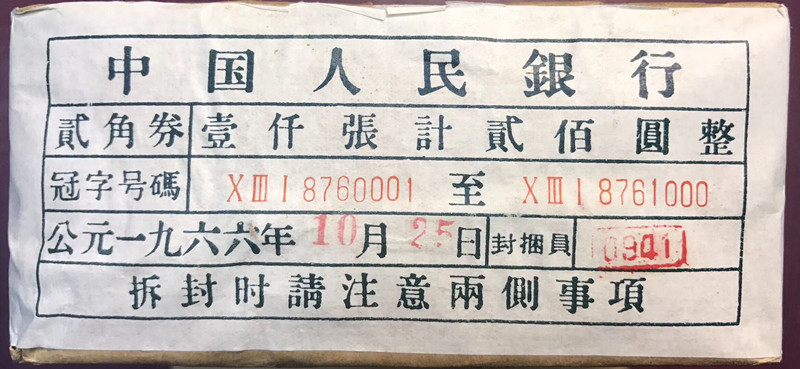 中国人民銀行
貳角券 壹仟張計貳佰圓整
冠字号碼 XIII I 8760001 至 XIII I 8761000
公元一九六六年10月25日 封捆員 0941
拆封时請注意兩側事項